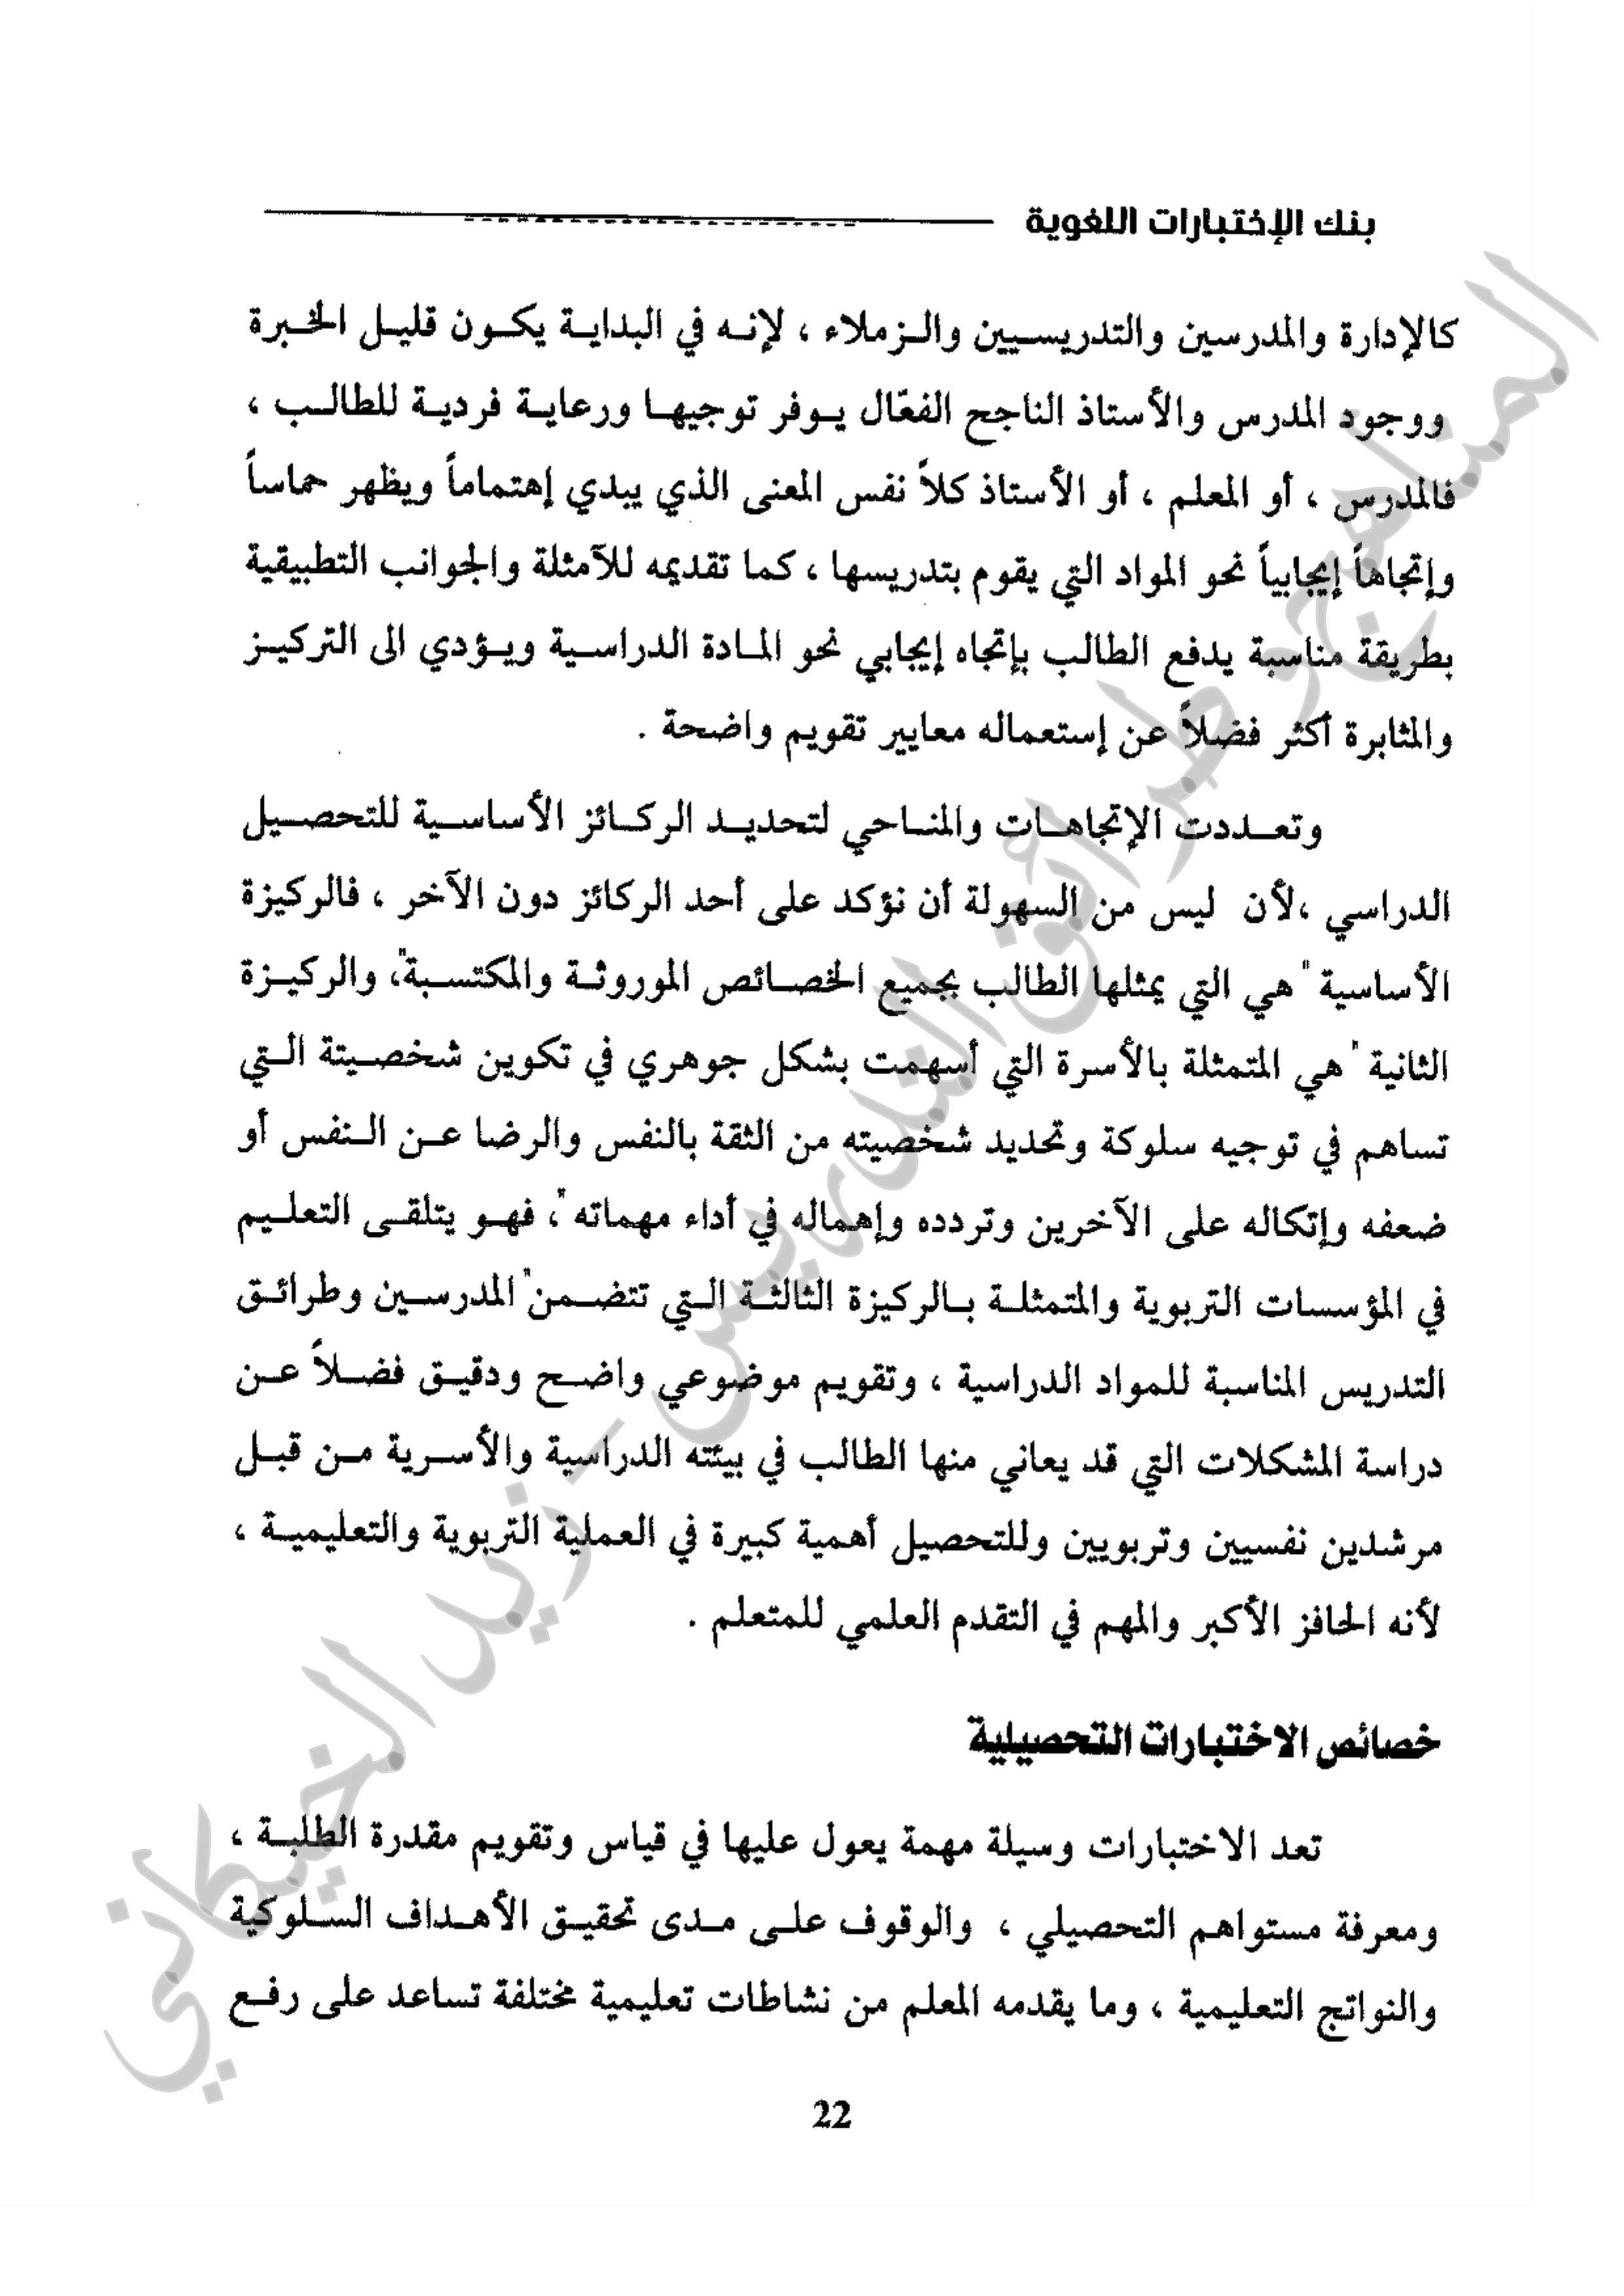 بنك الإختبارات اللغوية
كالإدارة والمدرسين والتدريسيين والزملاء ، لإنه في البداية يكون قليل الخبرة
ووجود المدرس والأستاذ الناجح الفعّال يوفر توجيها ورعاية فردية للطالب ،
فالمدرس ، أو المعلم ، أو الأستاذ كلاً نفس المعنى الذي يبدي إهتماماً ويظهر حماساً
وإتجاهاً إيجابياً نحو المواد التي يقوم بتدريسها ، كما تقديمه للآمثلة والجوانب التطبيقية
بطريقة مناسبة يدفع الطالب بإتجاه إيجابي نحو المادة الدراسية ويؤدي الى التركيز
والمثابرة أكثر فضلاً عن إستعماله معايير تقويم واضحة .
وتعددت الإتجاهات والمناحي لتحديد الركائز الأساسية للتحصيل
الدراسي ،لأن ليس من السهولة أن نؤكد على أحد الركائز دون الآخر ، فالركيزة
الأساسية " هي التي يمثلها الطالب بجميع الخصائص الموروثة والمكتسبة"، والركيزة
الثانية " هي المتمثلة بالأسرة التي أسهمت بشكل جوهري في تكوين شخصيتة التي
تساهم في توجيه سلوكة وتحديد شخصيته من الثقة بالنفس والرضا عن النفس أو
ضعفه وإتكاله على الآخرين وتردده وإهماله في أداء مهماته "، فهو يتلقى التعليم
في المؤسسات التربوية والمتمثلة بالركيزة الثالثة التي تتضمن" المدرسين وطرائق
التدريس المناسبة للمواد الدراسية ، وتقويم موضوعي واضح ودقيق فضلاً عن
دراسة المشكلات التي قد يعاني منها الطالب في بيئته الدراسية والأسرية من قبل
مرشدين نفسيين وتربويين وللتحصيل أهمية كبيرة في العملية التربوية والتعليمية ،
لأنه الحافز الأكبر والمهم في التقدم العلمي للمتعلم .
خصائص الاختبارات التحصيلية
تعد الاختبارات وسيلة مهمة يعول عليها في قياس وتقويم مقدرة الطلبة ،
ومعرفة مستواهم التحصيلي ، والوقوف على مدى تحقيق الأهداف السلوكية
والنواتج التعليمية ، وما يقدمه المعلم من نشاطات تعليمية مختلفة تساعد على رفع
22
المناهج وطرائق التدريس - زيد الخيكاني